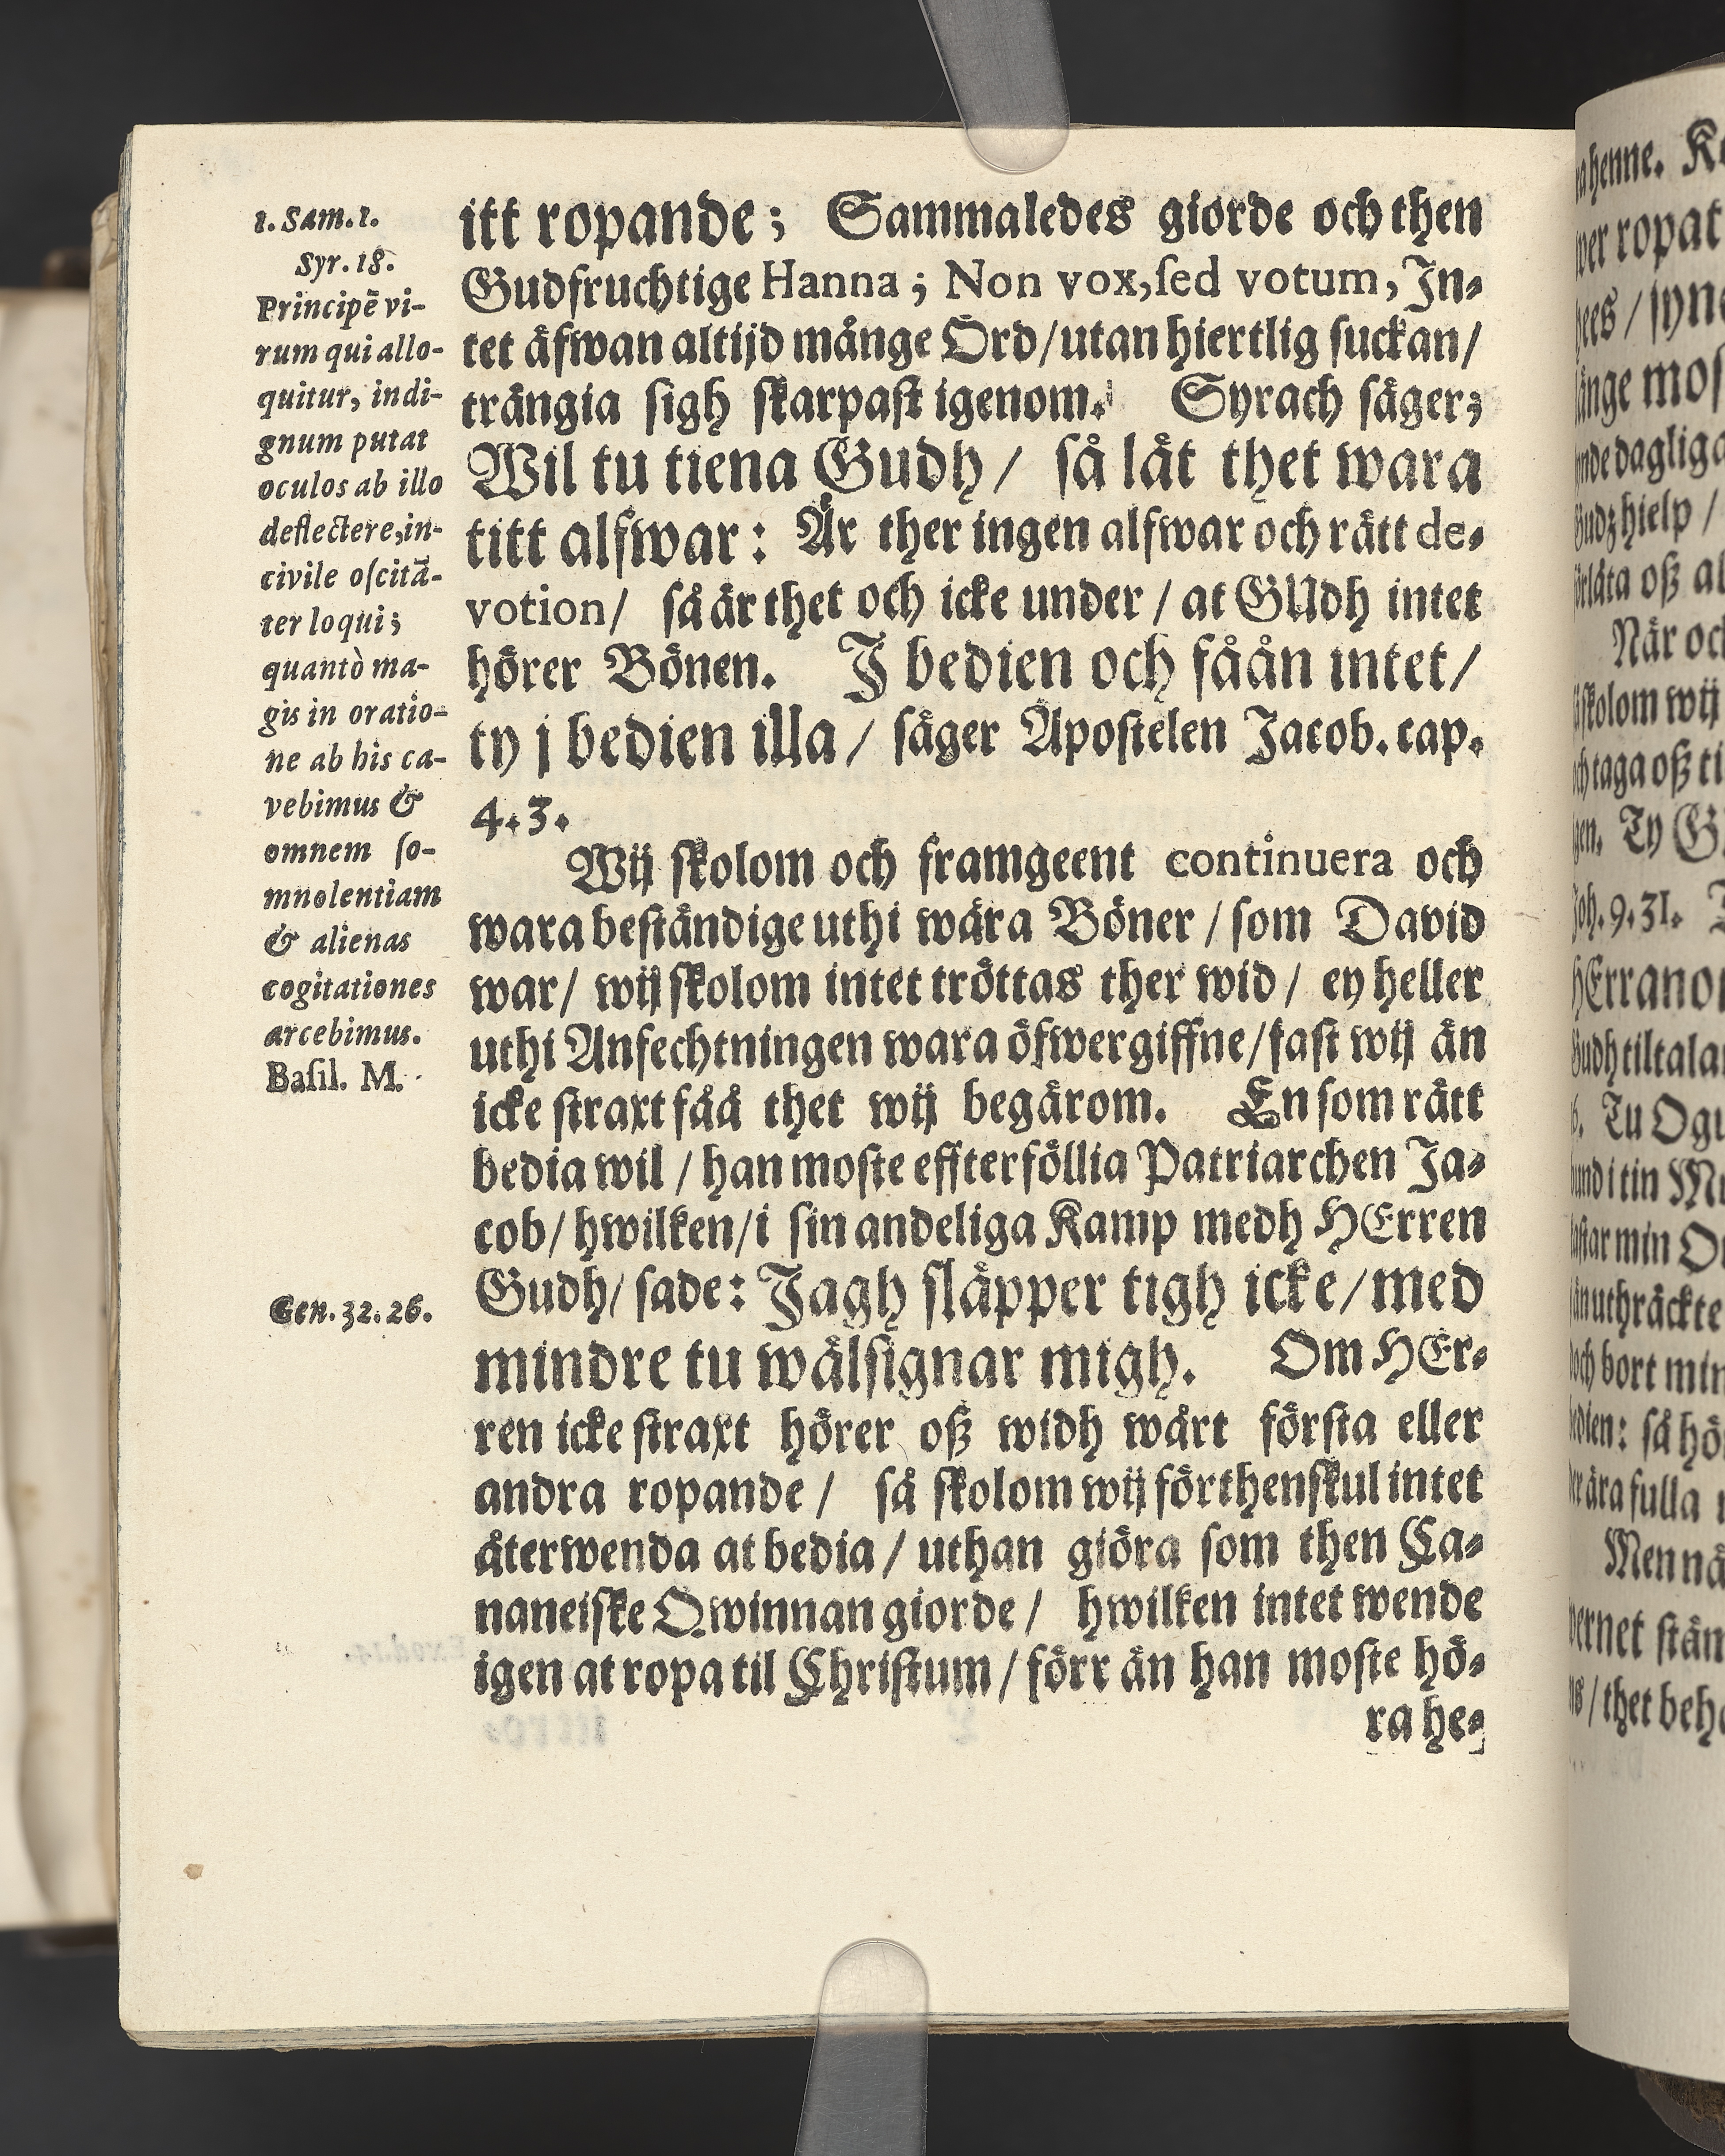 1. Sam. 1.
Syr. 18.
Principē vi-
rum qui allo-
quitur, indi-
gnum putat
oculos ab illo
deflectere, in-
civile oſcitā-
ter loqui;
quantò ma-
gis in oratio-
ne ab his ca-
vebimus &
omnem ſo-
mnolentiam
& alienas
cogitationes
arcebimus.
Baſil. M.
Gen. 32. 26.
itt ropande; Sammaledes giorde och then
Gudfruchtige Hanna; Non vox, ſed votum, In-
tet äfwan altijd månge Ord/ utan hiertlig ſuckan/
trängia ſigh ſkarpaſt igenom. Syrach ſäger;
Wil tu tiena Gudh/ ſå låt thet wara
titt alfwar: Är ther ingen alfwar och rätt de-
votion/ ſå är thet och icke under/ at GUdh intet
hörer Bönen. J bedien och fåån intet/
ty j bedien illa/ ſäger Apoſtelen Jacob. cap.
4. 3.
Wij ſkolom och framgeent continuera och
wara beſtändige uthi wåra Böner/ ſom David
war/ wij ſkolom intet tröttas ther wid/ ey heller
uthi Anfechtningen wara öfwergiffne/ faſt wij än
icke ſtraxt fåå thet wij begärom. En ſom rätt
bedia wil/ han moſte effterföllia Patriarchen Ja-
cob/ hwilken/ i ſin andeliga Kamp medh HErren
Gudh/ ſade: Jagh ſläpper tigh icke/ med
mindre tu wälſignar migh. Om HEr-
ren icke ſtraxt hörer oß widh wårt förſta eller
andra ropande/ ſå ſkolom wij förthenſkul intet
återwenda at bedia/ uthan giöra ſom then Ca-
naneiſke Qwinnan giorde/ hwilken intet wende
igen at ropa til Chriſtum/ förr än han moſte hö-
ra he-